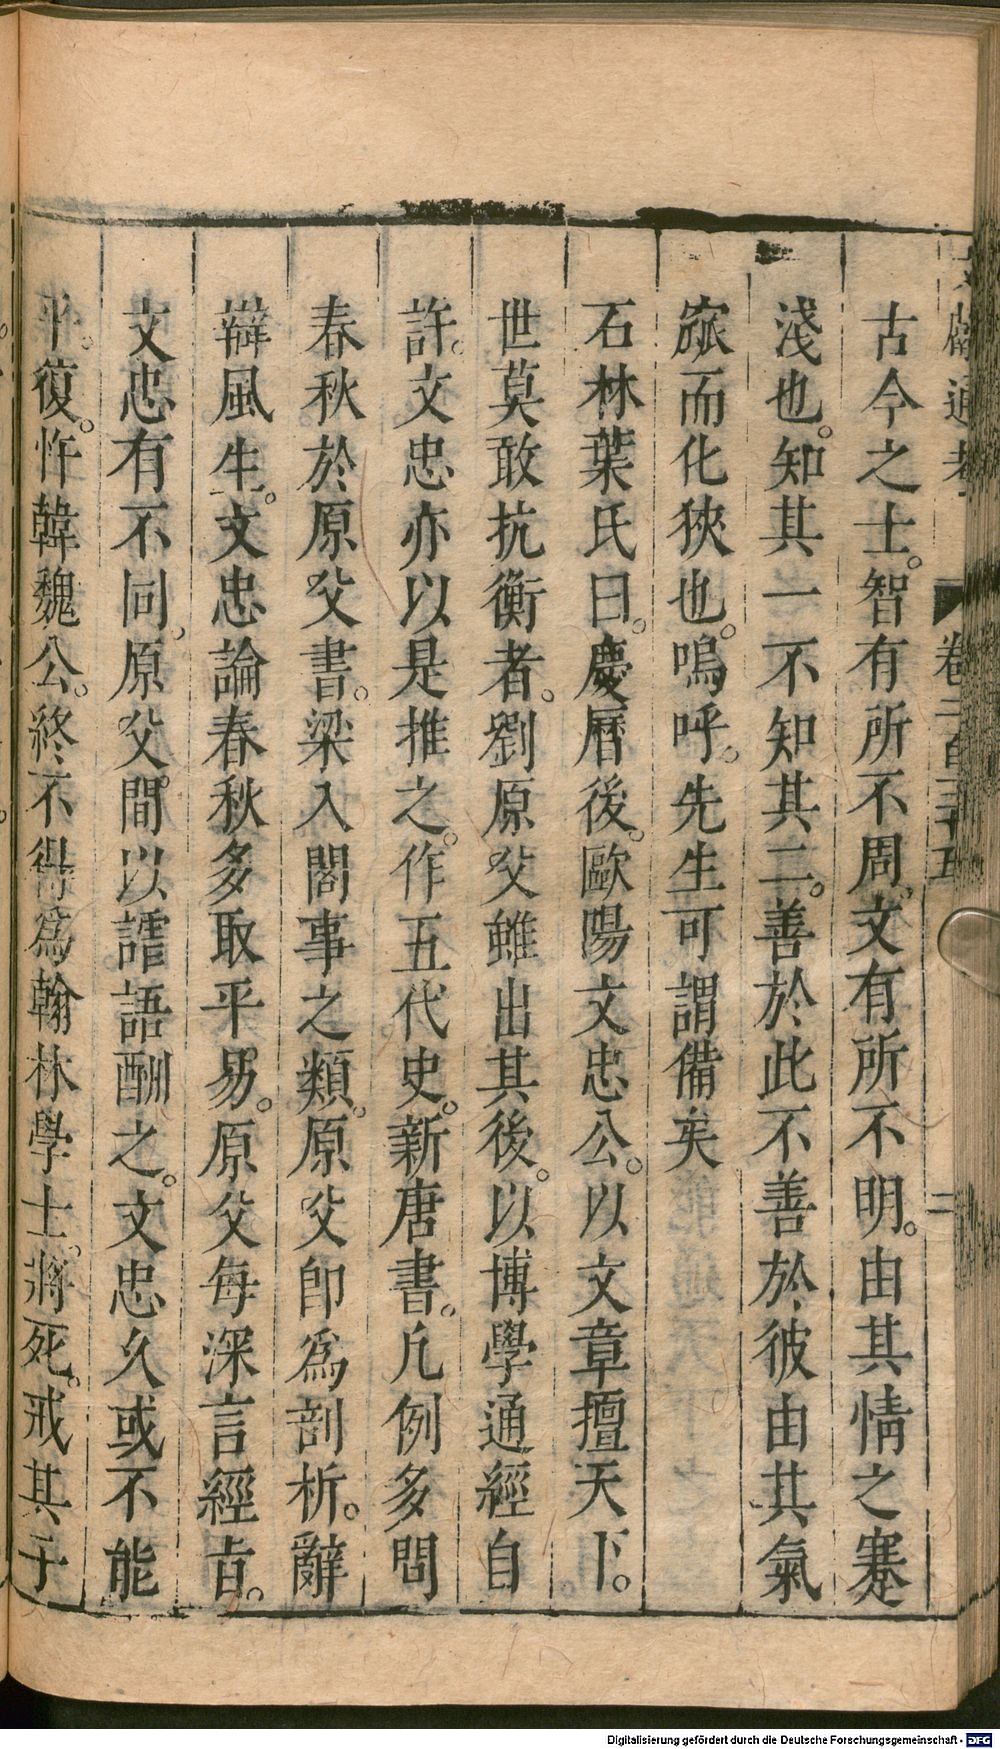 古今之士。智有所不周。文有所不明。由其情之蹇
淺也。知其一不知其二。善於此不善於彼由其氣
寙而化狹也。嗚呼。先生可謂備矣
石林葉氏曰。慶曆後。歐陽文忠公。以文章擅天下。
世莫敢抗衡者。劉原父雖出其後。以博學通經自
許。文忠亦以是推之。作五代史。新唐書。凡例多問
春秋於原父書。梁入閣事之類。原父卽爲剖析。辭
辯風生。文忠論春秋多取平易。原父每深言經旨。
文忠有不同。原父間以謔語酬之。文忠久或不能
平。復忤韓魏公。終不得爲翰林學士。將死。戒其子
通考 卷二百三十五
二
Digitalisierung gefördert durch die Deutsche Forschungsgemeinschaft - DFG